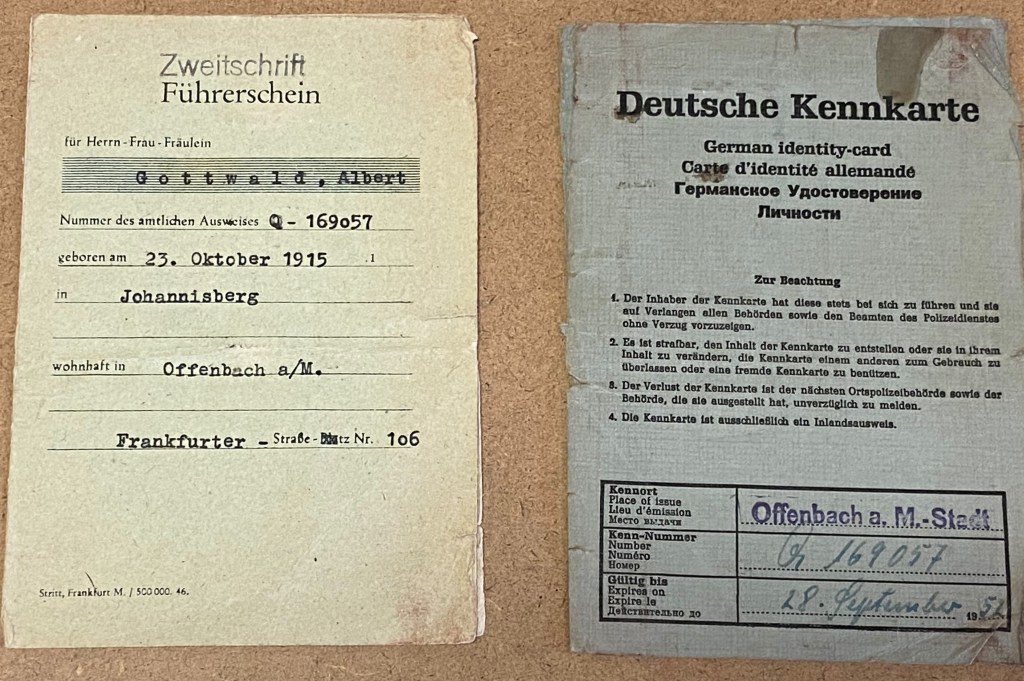 Zweitschrift
Führerschein
für Herrn - Frau - Fräulein
Gottwald, Albert
Nummer des amtlichen Ausweises Q - 169o57
geboren am 23. Oktober 1915
in Johannisberg
wohnhaft in Offenbach a/M.
Frankfurter - Straße - Nr. 1o6
Stritt, Frankfurt M. / 500 000. 46.
Deutsche Kennkarte
German identity-card
Carte d'identité allemande
Германское Удостоверение
Личности
Zur Beachtung
1. Der Inhaber der Kennkarte hat diese stets bei sich zu führen und sie
auf Verlangen allen Behörden sowie den Beamten des Polizeidienstes
ohne Verzug vorzuzeigen.
2. Es ist strafbar, den Inhalt der Kennkarte zu entstellen oder sie in ihrem
Inhalt zu verändern, die Kennkarte einem anderen zum Gebrauch zu
überlassen oder eine fremde Kennkarte zu benützen.
3. Der Verlust der Kennkarte ist der nächsten Ortspolizeibehörde sowie der
Behörde, die sie ausgestellt hat, unverzüglich zu melden.
4. Die Kennkarte ist ausschließlich ein Inlandsausweis.
Kennort
Place of issue
Lieu d'émission
Место выдачи
Offenbach a. M.-Stadt
Kenn-Nummer
Number
Numéro
Номер
Q 169057
Gültig bis
Expires on
Expire le
Действительно до
28. September 1952